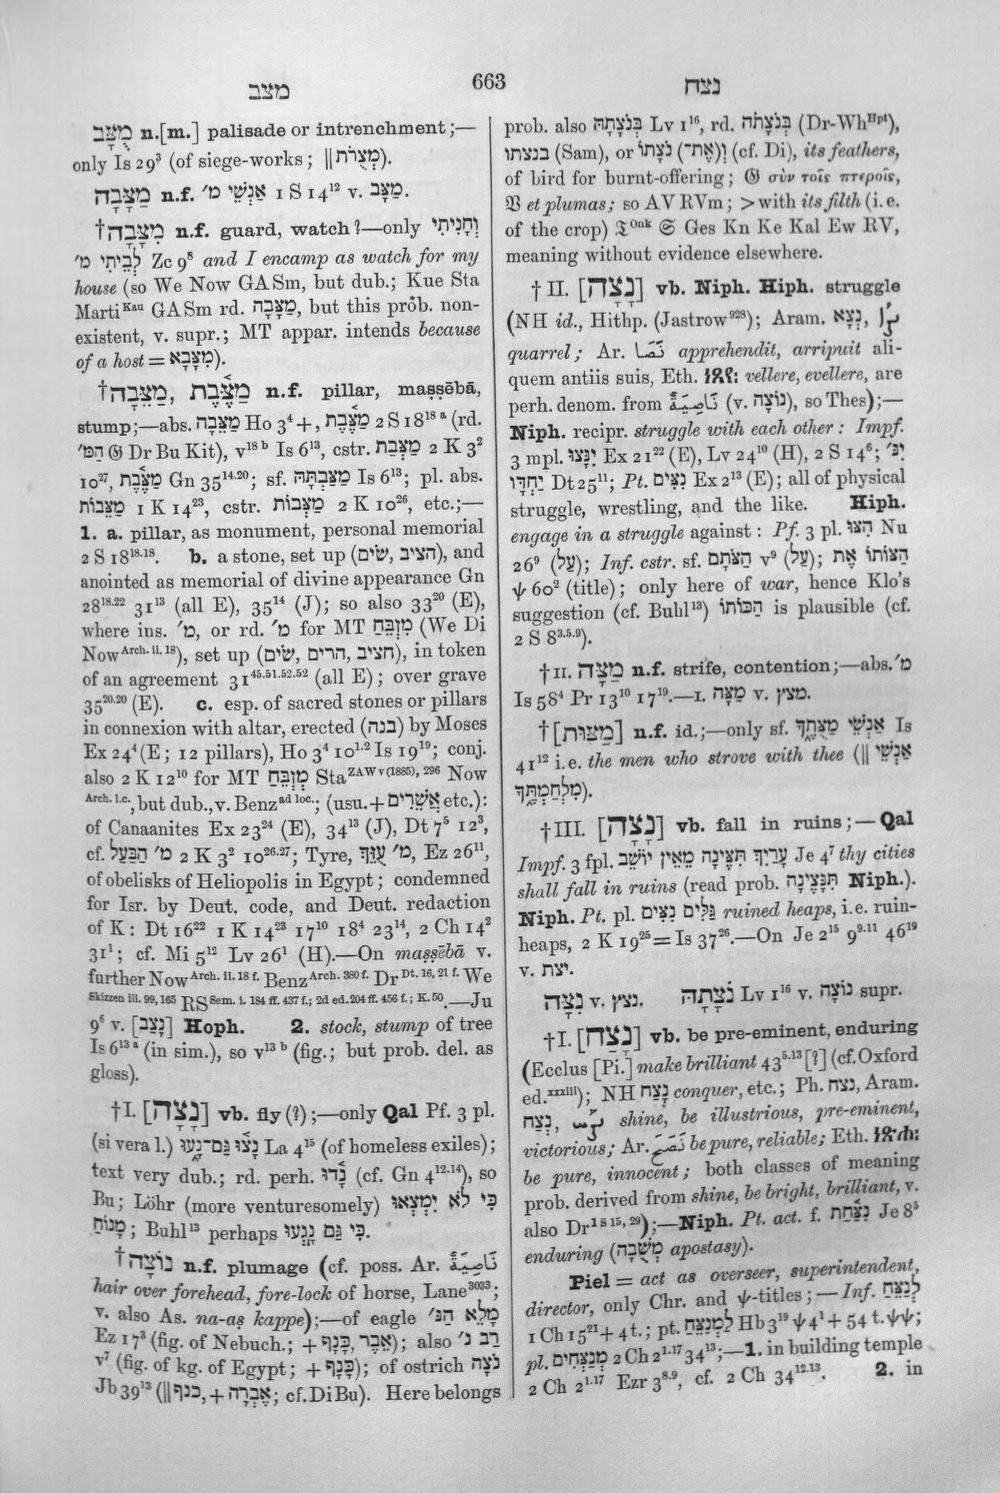 מצב
663
נצח
מֻצָּב n.[m.] palisade or intrenchment;—
only Is 29³ (of siege-works; ||מְצֻרֹת).
מַצָּבָה n.f. אַנְשֵׁי מ׳ 1 S 14¹² v. מַצָּב.
†מִצָּבָה n.f. guard, watch?—only וְחָנִיתִי
לְבֵיתִי מ׳ Zc 9⁸ and I encamp as watch for my
house (so We Now GASm, but dub.; Kue Sta
Marti Kau GASm rd. מַצָּבָה, but this prob. non-
existent, v. supr.; MT appar. intends because
of a host = מִצָּבָא).
†מַצֵּבָה, מַצֶּבֶת n.f. pillar, maṣṣēbā,
stump;—abs. מַצֵּבָה Ho 3⁴ +, מַצֶּבֶת 2 S 18¹⁸ ᵃ (rd.
הַמּ׳ 𝔊 Dr Bu Kit), v¹⁸ ᵇ Is 6¹³, cstr. מַצְּבַת 2 K 3²
10²⁷, מַצֶּבֶת Gn 35¹⁴·²⁰; sf. מַצַּבְתָּהּ Is 6¹³; pl. abs.
מַצֵּבוֹת 1 K 14²³, cstr. מַצְּבוֹת 2 K 10²⁶, etc.;—
1. a. pillar, as monument, personal memorial
2 S 18¹⁸·¹⁸. b. a stone, set up (הציב, שׂים), and
anointed as memorial of divine appearance Gn
28¹⁸·²² 31¹³ (all E), 35¹⁴ (J); so also 33²⁰ (E),
where ins. מ׳, or rd. מ׳ for MT מִזְבֵּחַ (We Di
Now Arch. ii. 18), set up (הציב, הרים, שׂים), in token
of an agreement 31⁴⁵·⁵¹·⁵²·⁵² (all E); over grave
35²⁰·²⁰ (E). c. esp. of sacred stones or pillars
in connexion with altar, erected (בנה) by Moses
Ex 24⁴ (E; 12 pillars), Ho 3⁴ 10¹·² Is 19¹⁹; conj.
also 2 K 12¹⁰ for MT מִזְבֵּחַ Sta ZAW v (1885), 296 Now
Arch. l.c., but dub., v. Benz ad loc.; (usu. + אֲשֵׁרִים etc.):
of Canaanites Ex 23²⁴ (E), 34¹³ (J), Dt 7⁵ 12³,
cf. מ׳ הַבַּעַל 2 K 3² 10²⁶·²⁷; Tyre, מ׳ עֻזֵּךְ, Ez 26¹¹,
of obelisks of Heliopolis in Egypt; condemned
for Isr. by Deut. code, and Deut. redaction
of K: Dt 16²² 1 K 14²³ 17¹⁰ 18⁴ 23¹⁴, 2 Ch 14²
31¹; cf. Mi 5¹² Lv 26¹ (H).—On maṣṣēbā v.
further Now Arch. ii. 18 f. Benz Arch. 380 f. Dr Dt. 16, 21 f. We
Skizzen iii. 99, 165 RS Sem. i. 184 ff. 437 f.; 2d ed. 204 ff. 456 f.; K. 50.—Ju
9⁶ v. [נָצַב] Hoph. 2. stock, stump of tree
Is 6¹³ ᵃ (in sim.), so v¹³ ᵇ (fig.; but prob. del. as
gloss).
†I. [נָצָה] vb. fly (?);—only Qal Pf. 3 pl.
(si vera l.) נָצוּ גַּם־נָעוּ La 4¹⁵ (of homeless exiles);
text very dub.; rd. perh. נָדוּ (cf. Gn 4¹²·¹⁴), so
Bu; Löhr (more venturesomely) כִּי לֹא יִמְצְאוּ
מָנוֹחַ; Buhl¹³ perhaps כִּי גַּם נָגָעוּ.
†נוֹצָה n.f. plumage (cf. poss. Ar. نَاصِيَةٌ
hair over forehead, fore-lock of horse, Lane³⁰³³;
v. also As. na-aṣ kappe);—of eagle מָלֵא הַנּ׳
Ez 17³ (fig. of Nebuch.; + כָּנָף, אֵבֶר); also רַב נ׳
v⁷ (fig. of kg. of Egypt; + כָּנָף); of ostrich נֹצָה
Jb 39¹³ (||כנף, + אֶבְרָה; cf. Di Bu). Here belongs
prob. also בְּנֹצָתָהּ Lv 1¹⁶, rd. בְּנֹצָתֹה (Dr-Wh Hpt),
בנצתו (Sam), or נֹצָתוֹ (וְ(אֶת־ (cf. Di), its feathers,
of bird for burnt-offering; 𝔊 σὺν τοῖς πτεροῖς,
𝔙 et plumas; so AV RVm; > with its filth (i.e.
of the crop) 𝔗Onk 𝔖 Ges Kn Ke Kal Ew RV,
meaning without evidence elsewhere.
†II. [נָצָה] vb. Niph. Hiph. struggle
(NH id., Hithp. (Jastrow⁹²⁸); Aram. נְצָא,
quarrel; Ar. نَصَا apprehendit, arripuit ali-
quem antiis suis, Eth. vellere, evellere, are
perh. denom. from نَاصِيَةٌ (v. נוֹצָה), so Thes);—
Niph. recipr. struggle with each other: Impf.
3 mpl. יִנָּצוּ Ex 21²² (E), Lv 24¹⁰ (H), 2 S 14⁶; יִנּ׳
יַחְדָּו Dt 25¹¹; Pt. נִצִּים Ex 2¹³ (E); all of physical
struggle, wrestling, and the like. Hiph.
engage in a struggle against: Pf. 3 pl. הִצּוּ Nu
26⁹ (עַל); Inf. cstr. sf. הַצֹּתָם v⁹ (עַל); הַצּוֹתוֹ אֶת
ψ 60² (title); only here of war, hence Klo's
suggestion (cf. Buhl¹³) הַכּוֹתוֹ is plausible (cf.
2 S 8³·⁵·⁹).
†II. מַצָּה n.f. strife, contention;—abs. מ׳
Is 58⁴ Pr 13¹⁰ 17¹⁹.—I. מַצָּה v. מצץ.
†[מַצּוּת] n.f. id.;—only sf. אַנְשֵׁי מַצֻּתֶךָ Is
41¹² i.e. the men who strove with thee (|| אַנְשֵׁי
מִלְחַמְתֶּךָ).
†III. [נָצָה] vb. fall in ruins;—Qal
Impf. 3 fpl. עָרַיִךְ תִּצֶּינָה מֵאֵין יוֹשֵׁב Je 4⁷ thy cities
shall fall in ruins (read prob. תִּנָּצֶינָה Niph.).
Niph. Pt. pl. גַּלִּים נִצִּים ruined heaps, i.e. ruin-
heaps, 2 K 19²⁵ = Is 37²⁶.—On Je 2¹⁵ 9⁹·¹¹ 46¹⁹
v. יצת.
נִצָּה v. נצץ. נֹצָתָהּ Lv 1¹⁶ v. נוֹצָה supr.
†I. [נָצַח] vb. be pre-eminent, enduring
(Ecclus [Pi.] make brilliant 43⁵·¹³ [?] (cf. Oxford
ed. xxxiii); NH נָצַח conquer, etc.; Ph. נצח, Aram.
נְצַח, shine, be illustrious, pre-eminent,
victorious; Ar. نَصَحَ be pure, reliable; Eth.
be pure, innocent; both classes of meaning
prob. derived from shine, be bright, brilliant, v.
also Dr 1 S 15, 29);—Niph. Pt. act. f. נִצַּחַת Je 8⁵
enduring (מְשֻׁבָה apostasy).
Piel = act as overseer, superintendent,
director, only Chr. and ψ-titles;—Inf. לְנַצֵּחַ
1 Ch 15²¹ + 4 t.; pt. לַמְנַצֵּחַ Hb 3¹⁹ ψ 4¹ + 54 t. ψψ;
pl. מְנַצְּחִים 2 Ch 2¹·¹⁷ 34¹³;—1. in building temple
2 Ch 2¹·¹⁷ Ezr 3⁸·⁹, cf. 2 Ch 34¹²·¹³. 2. in